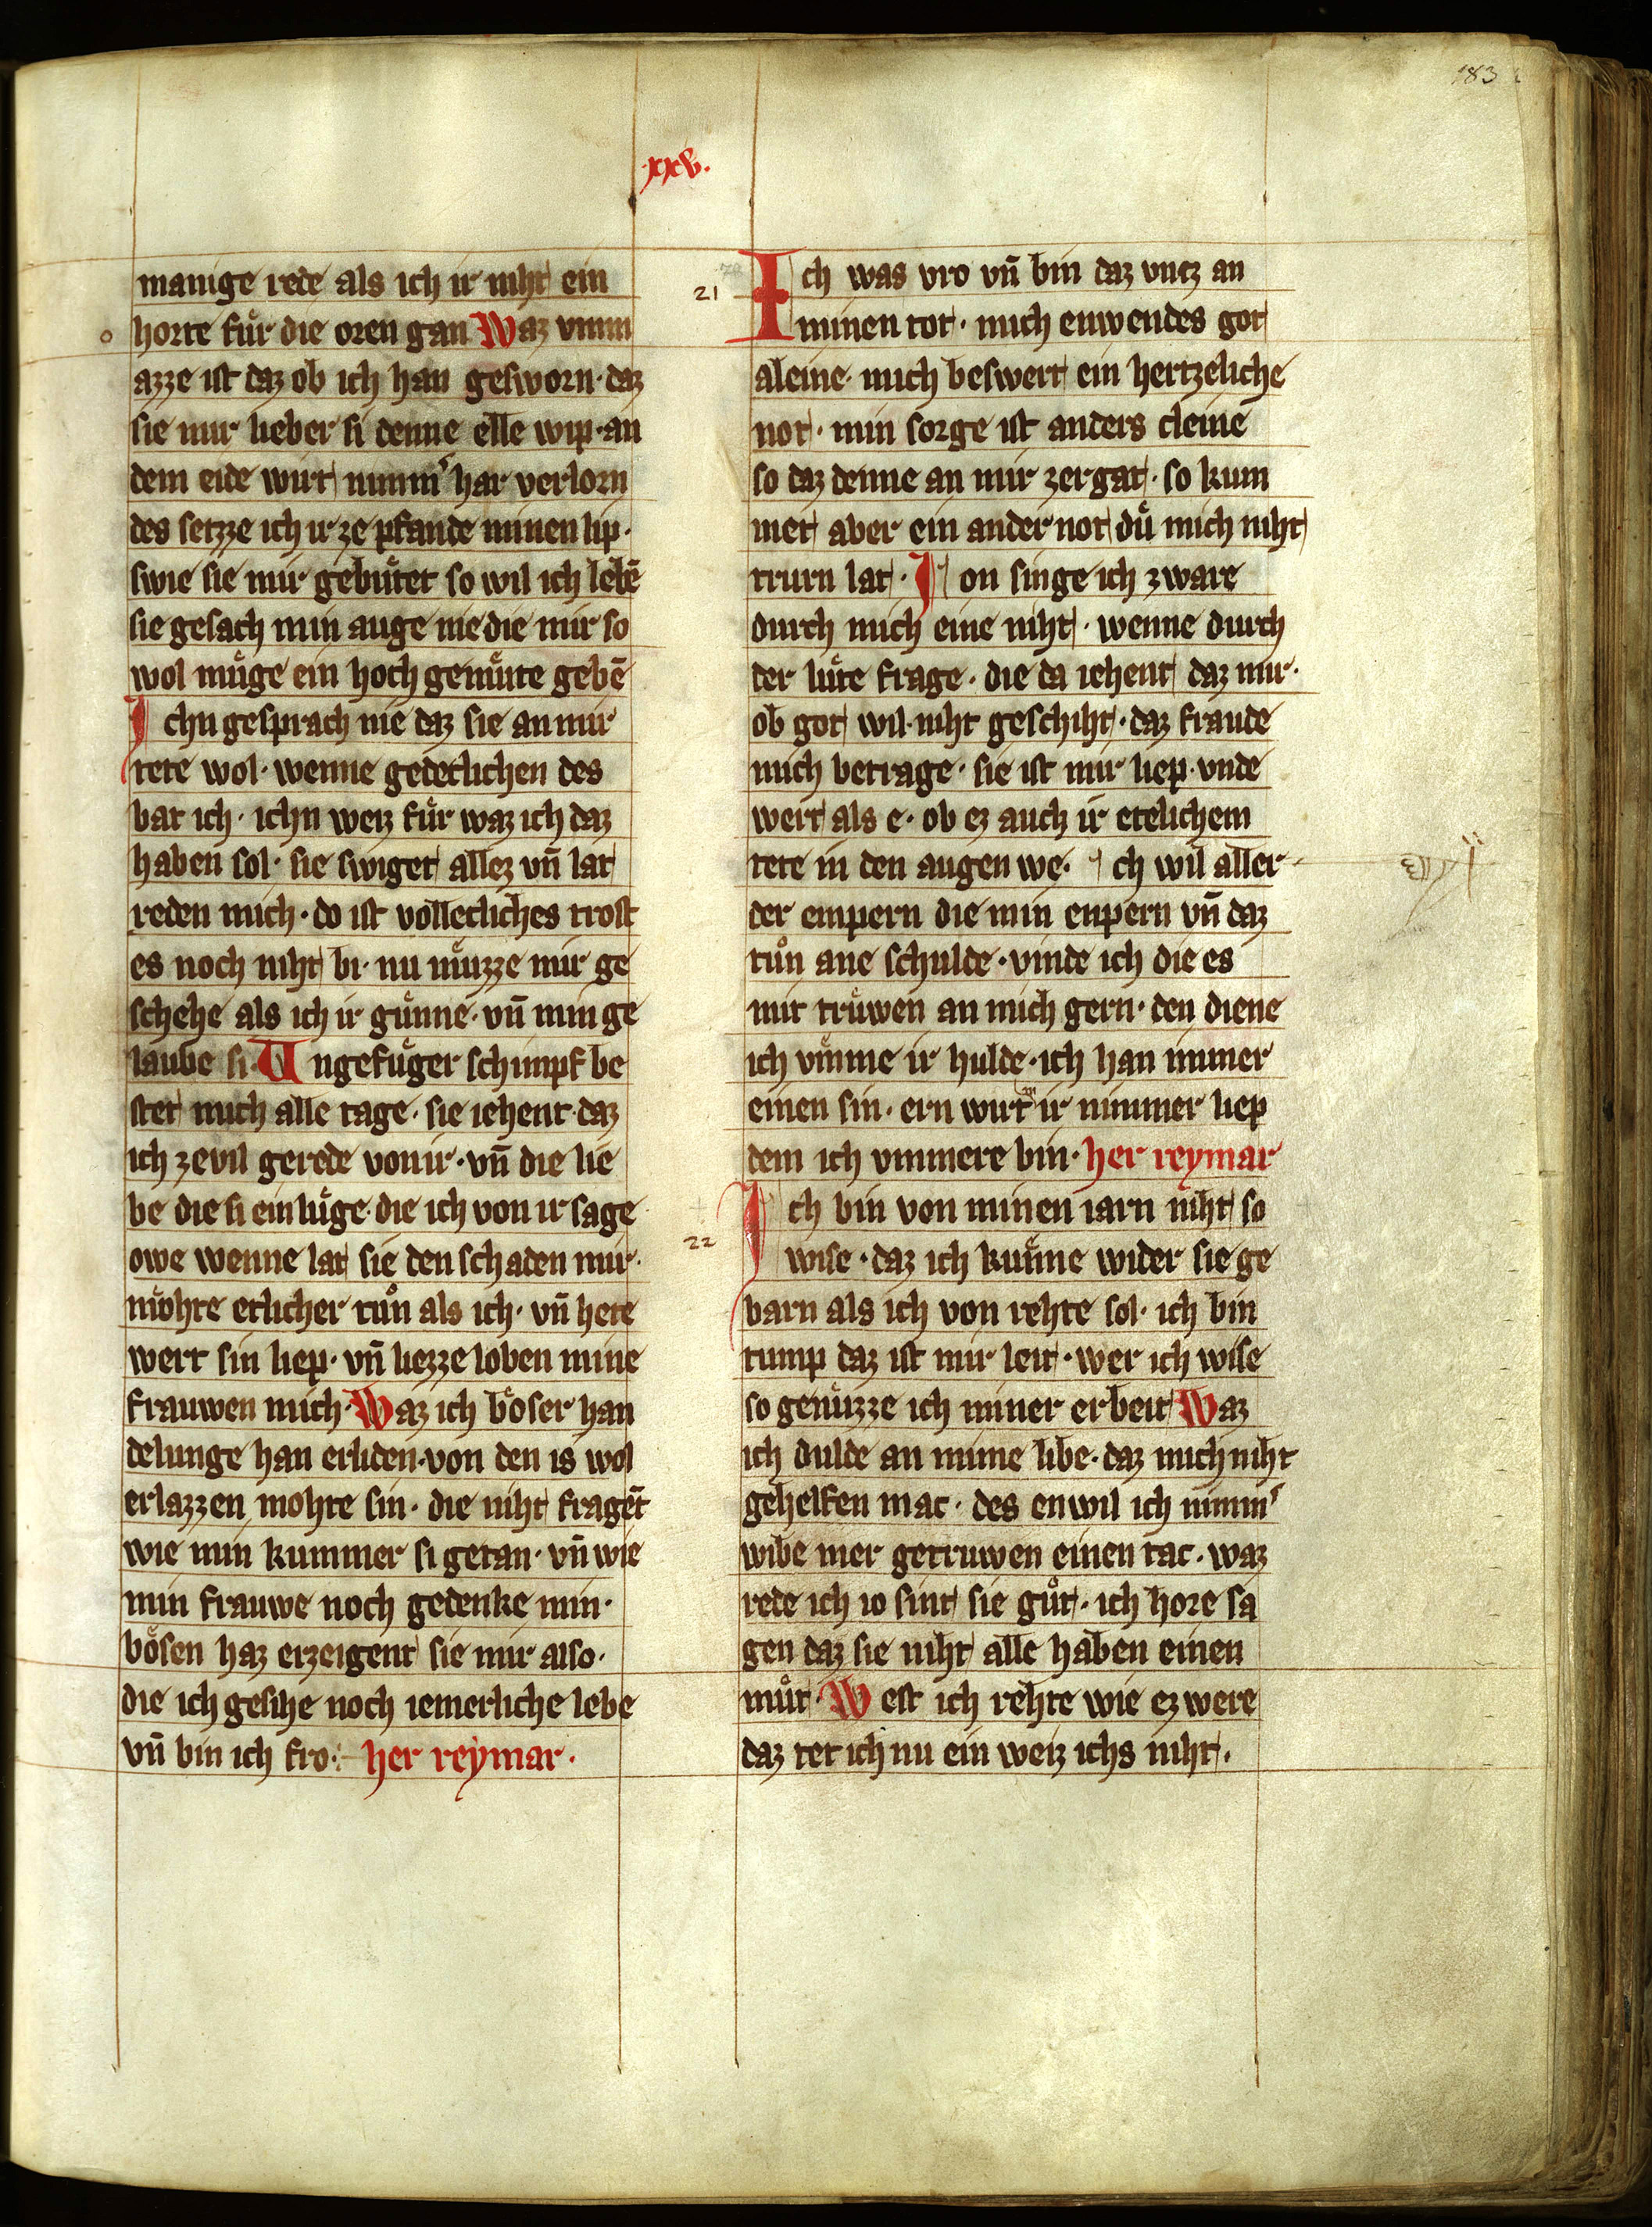 183
xxv.
manige rede als ich ir niht ein
horte fuͤr die oren gan Waz vnm
azze ist daz ob ich han gesworn· daz
sie mir lieber si denne elle wip· an
dem eide wirt nimm̾ har verlorn
des setzze ich ir ze pfande minen lip·
swie sie mir gebiutet so wil ich lebē
sie gesach min auge nie die mir so
wol muͤge ein hoch gemuͤte gebē
Ichn gesprach nie daz sie an mir
tete wol· wenne gedetlichen des
bat ich· ichn weiz fuͤr waz ich daz
haben sol· sie swiget allez vn̄ lat
reden mich· do ist volletliches trost
es noch niht bi· nu muͤzze mir ge
schehe als ich ir guͤnne· vn̄ min ge
laube si· Ungefuͤger schimpf be
stet mich alle tage· sie iehent· daz
ich ze vil gerede von ir· vn̄ die lie
be die si ein luͤge· die ich von ir sage
owe wenne lat sie den schaden mir·
moͤhte etlicher tuͦn als ich· vn̄ hete
wert sin liep· vn̄ liezze loben mine
frauwen mich· Waz ich boͤser han
delunge han erliden· von den is wol
erlazzen mohte sin· die niht fragēt
wie min kummer si getan· vn̄ wie
min frauwe noch gedenke min·
boͤsen haz erzeigent sie mir also·
die ich gesihe noch iemerliche lebe
vn̄ bin ich fro· her reymar·
21
Ich was vro vn̄ bin daz vntz an
minen tot· mich enwendes got
aleine· mich beswert ein hertzeliche
not· min sorge ist anders cleine
so daz denne an mir zergat· so kum
met aber ein ander not duͤ mich niht
trurn lat· Ion singe ich zware
durch mich eine niht· wenne durch
der luͤte frage· die da iehent daz mir·
ob got wil· niht geschiht· daz fraude
mich betrage· sie ist mir liep· vnde
wert als e· ob ez auch ir etelichem
tete in den augen we· ch wil aller
der empern die min enpern vn̄ daz
tuͦn ane schulde· vinde ich die es
mit truͤwen an mich gern· den diene
ich vmme ir hulde· ich han immer
einen sin· ern wirt ir nimmer liep
dem ich vnmere bin· her reymar
22
Ich bin von minen iarn niht so
wise· daz ich kuͤnne wider sie ge
barn als ich von rehte sol· ich bin
tump daz ist mir leit· wer ich wise
so genuͤzze ich miner erbeit Waz
ich dulde an mime libe· daz mich niht
gehelfen mac· des enwil ich nimm̾
wibe mer getruwen einen tac· waz
rede ich io sint sie guͦt· ich hore sa
gen daz sie niht alle haben einen
muͦt· West ich rehte wie ez were
daz tet ich nu ein weiz ichs niht·